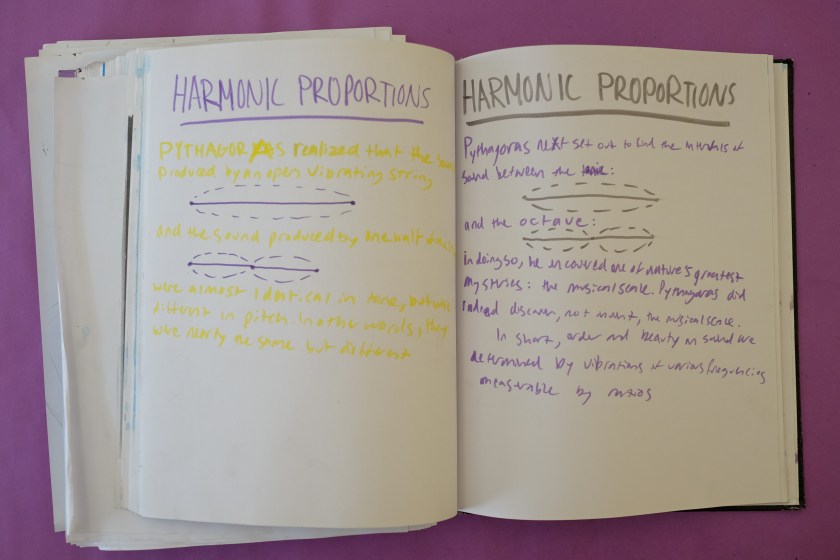 HARMONIC PROPORTIONS
PYTHAGORAS realized that the
produced by an open vibrating string
and the sound produced by one half
were almost identical in tone, but
different in pitch. In other words, they
were nearly the same but different
HARMONIC PROPORTIONS
Pythagoras next set out to find the intervals of
sound between the tonic:
and the octave:
in doing so, he uncovered one of nature's greatest
mysteries: the musical scale. Pythagoras did
indeed discover, not invent, the musical scale.
In short, order and beauty in sound are
determined by vibrations of various frequencies
measurable by ratios